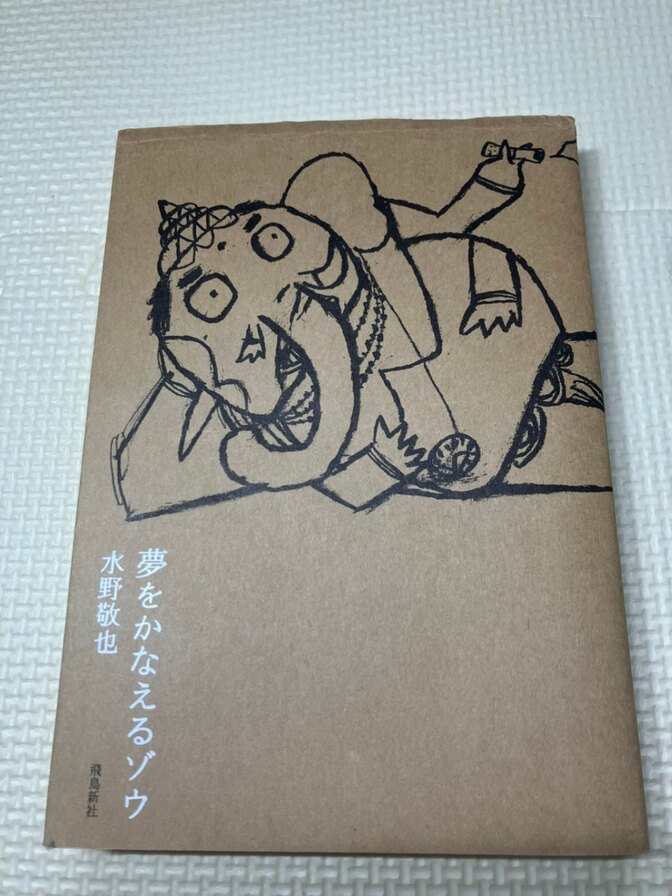 夢をかなえるゾウ
水野敬也
飛鳥新社